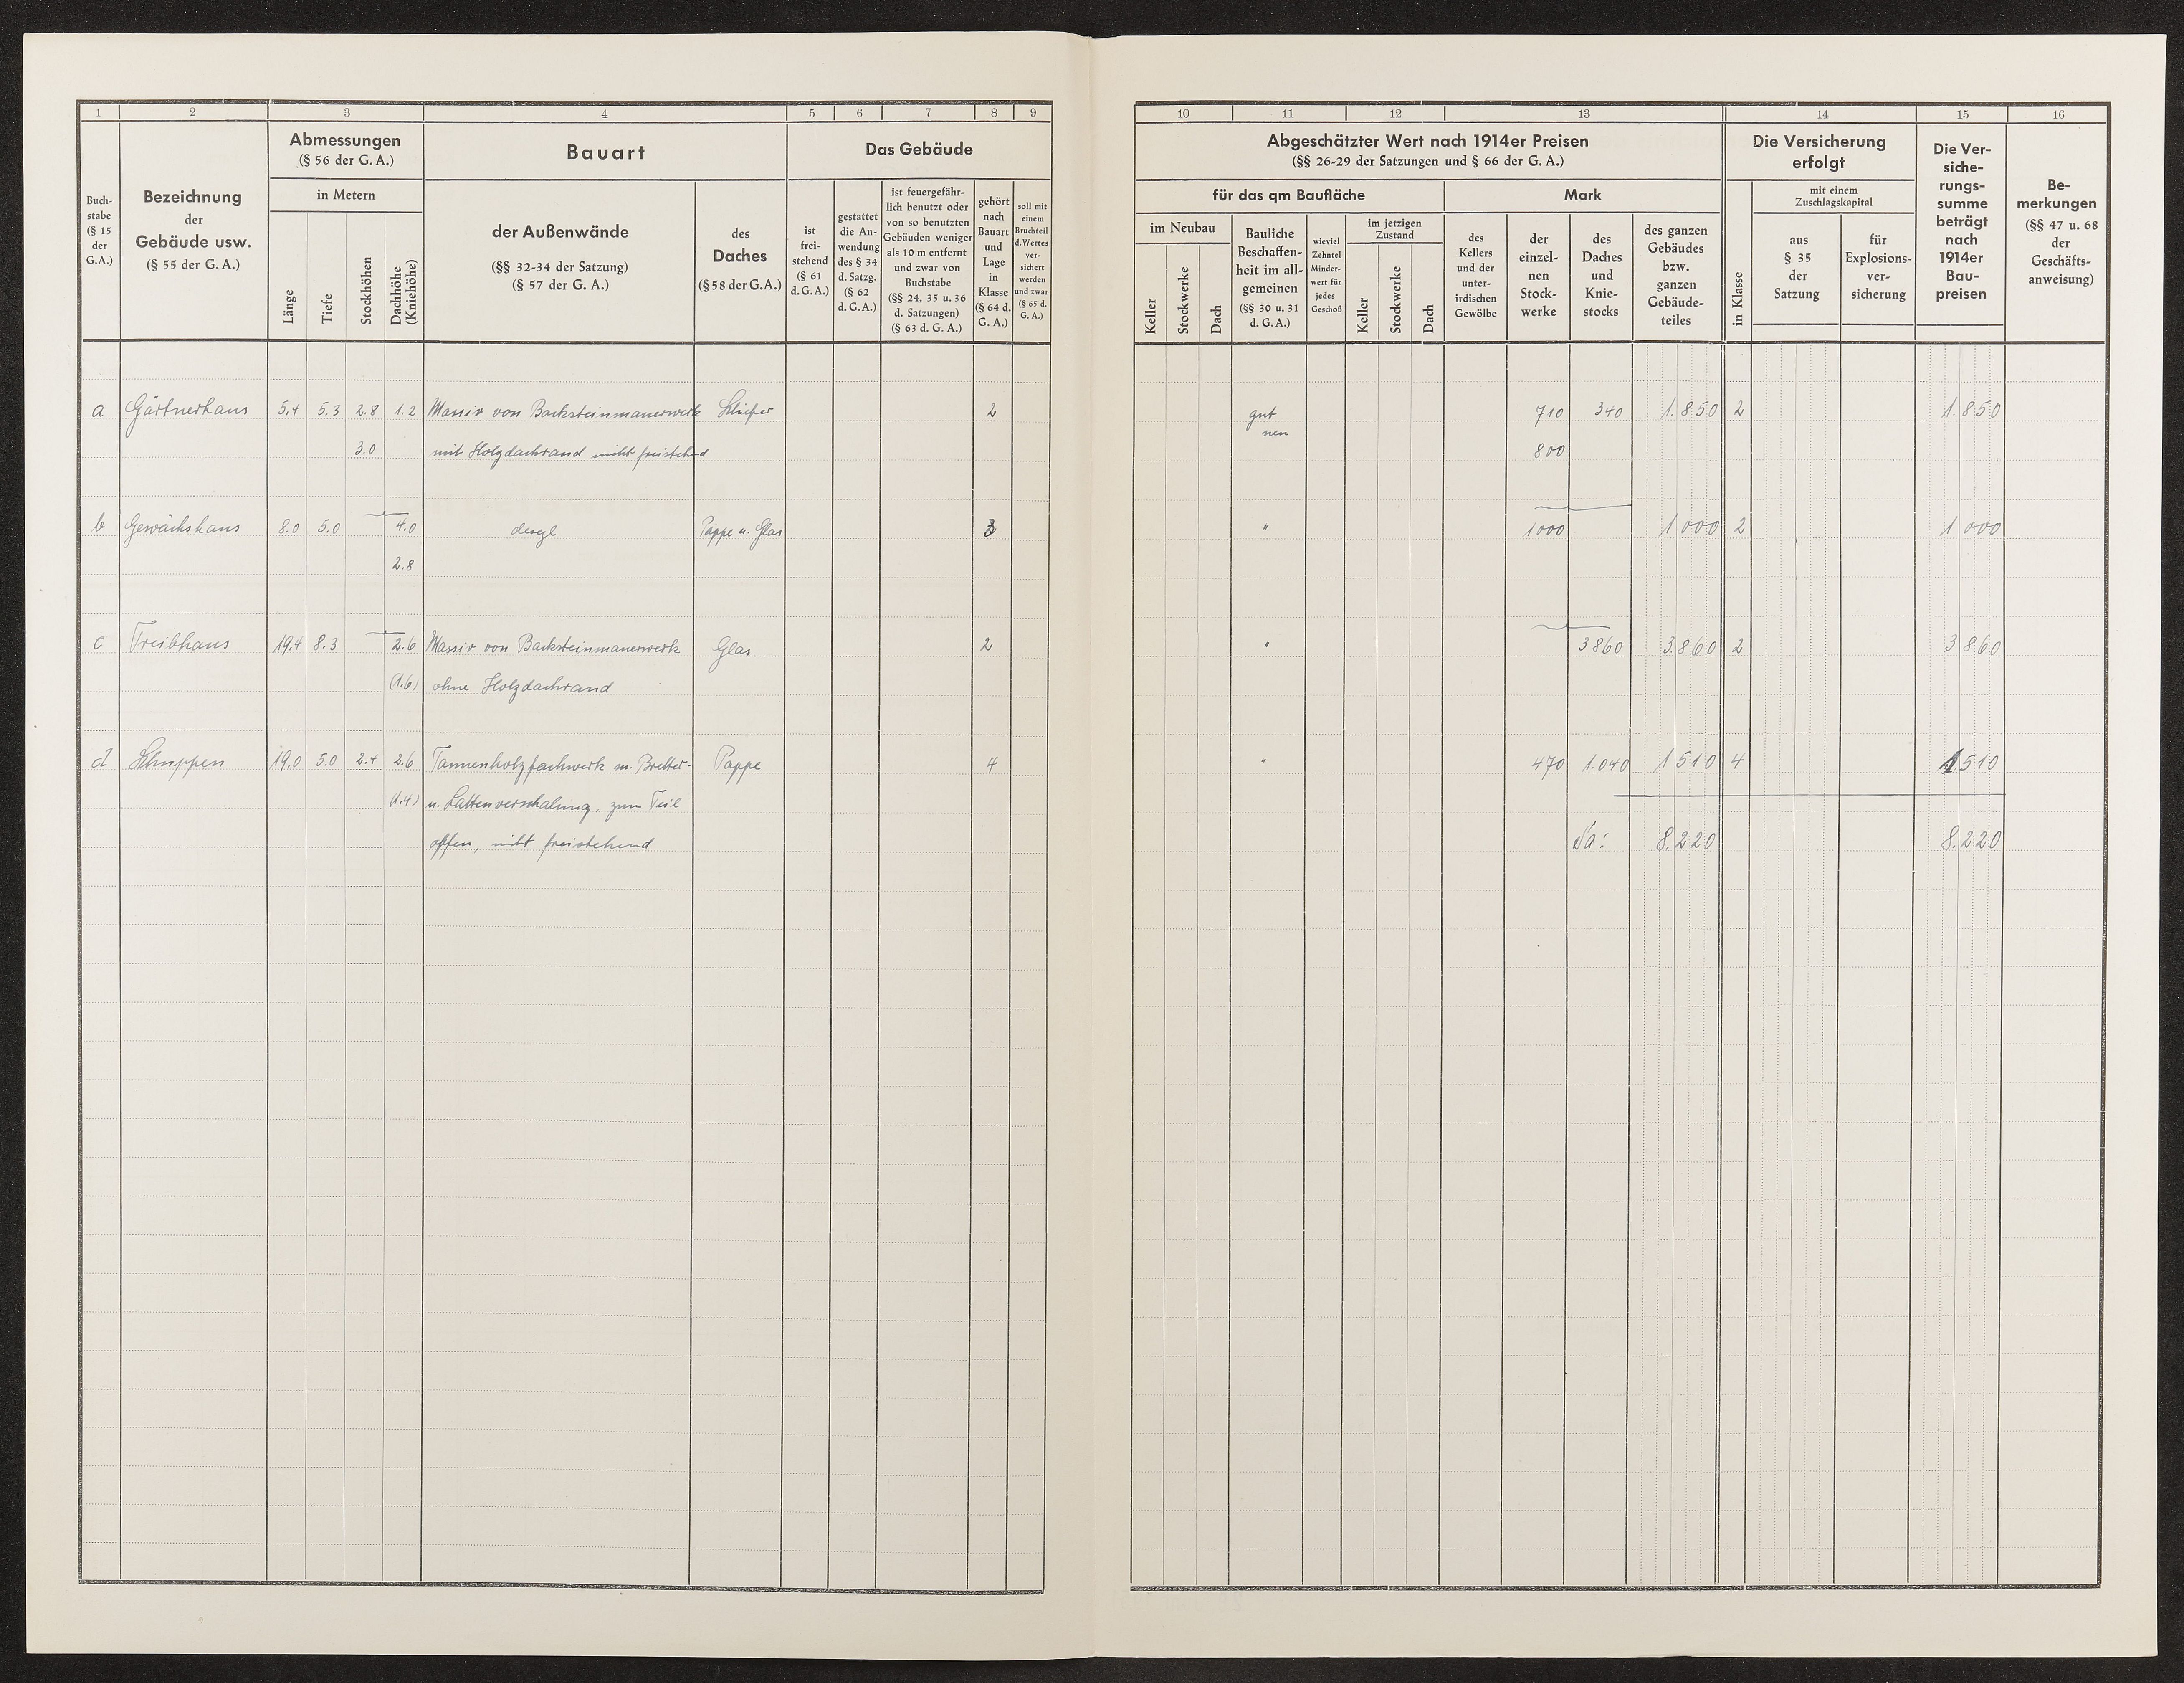 1 2 3 4 5 6 7 8 9
Abmessungen
(§ 56 der G. A.)
Bauart
Das Gebäude
Buch-
stabe
(§ 15
der
G.A.)
Bezeichnung
der
Gebäude usw.
(§ 55 der G. A.)
in Metern
Länge
Tiefe
Stockhöhen
Dachhöhe
(Kniehöhe)
der Außenwände
(§§ 32-34 der Satzung)
(§ 57 der G. A.)
des
Daches
(§ 58 der G. A.)
ist
frei-
stehend
(§ 61
d. G. A.)
gestattet
die An-
wendung
des § 34
d. Satzg.
(§ 62
d. G. A.)
ist feuergefähr-
lich benutzt oder
von so benutzten
Gebäuden weniger
als 10 m entfernt
und zwar von
Buchstabe
(§§ 24, 35 u. 36
d. Satzungen)
(§ 63 d. G. A.)
gehört
nach
Bauart
und
Lage
in
Klasse
(§ 64 d.
G. A.)
soll mit
einem
Bruchteil
d. Wertes
ver-
sichert
werden
und zwar
(§ 65 d.
G. A.)
a Gärtnerhaus 5.4 5.3 2.8 1.2 Massiv von Backsteinmauerwerk Schiefer 2
3.0 mit Holzdachrand nicht freistehend
b Gewächshaus 8.0 5.0 4.0 desgl Pappe u. Glas 3
2.8
c Treibhaus 19.4 8.3 2.6 Massiv von Backsteinmauerwerk Glas 2
(1.6) ohne Holzdachrand
d Schuppen 19.0 5.0 2.4 2.6 Tannenholzfachwerk m. Bretter- Pappe 4
(1.4) u. Lattenverschalung, zum Teil
offen, nicht freistehend
10 11 12 13 14 15 16
Abgeschätzter Wert nach 1914er Preisen
(§§ 26-29 der Satzungen und § 66 der G. A.)
für das qm Baufläche
Mark
im Neubau
Keller
Stockwerke
Dach
Bauliche
Beschaffen-
heit im all-
gemeinen
(§§ 30 u. 31
d. G. A.)
wieviel
Zehntel
Minder-
wert für
jedes
Geschoß
im jetzigen
Zustand
Keller
Stockwerke
Dach
des
Kellers
und der
unter-
irdischen
Gewölbe
der
einzel-
nen
Stock-
werke
des
Daches
und
Knie-
stocks
des ganzen
Gebäudes
bzw.
ganzen
Gebäude-
teiles
Die Versicherung
erfolgt
in Klasse
mit einem
Zuschlagskapital
aus
§ 35
der
Satzung
für
Explosions-
ver-
sicherung
Die Ver-
siche-
rungs-
summe
beträgt
nach
1914er
Bau-
preisen
Be-
merkungen
(§§ 47 u. 68
der
Geschäfts-
anweisung)
gut 710 340 1.850 2 1.850
neu
800
" 1000 1000 2 1000
" 3860 3.860 2 3860
" 470 1.040 1510 4 1.510
Sa: 8.220 8.220